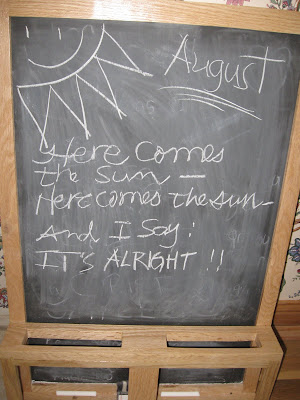 August
Here Comes
the Sun —
Here comes the sun —
And I Say:
IT'S ALRIGHT !!